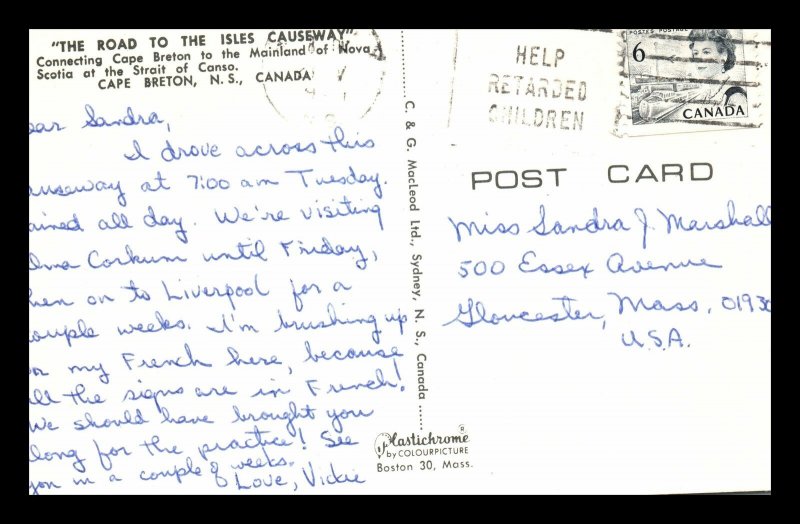 "THE ROAD TO THE ISLES CAUSEWAY"
Connecting Cape Breton to the Mainland of Nova
Scotia at the Strait of Canso.
CAPE BRETON, N. S., CANADA
ear Sandra,
I drove across this
auseway at 7:00 am Tuesday.
ained all day. We're visiting
lma Corkum until Friday,
hen on to Liverpool for a
ouple weeks. I'm brushing up
on my French here, because
all the signs are in French!
We should have brought you
long for the practice! See
you in a couple of weeks.
Love, Vickie
C. & G. MacLeod Ltd., Sydney, N. S., Canada
HELP
RETARDED
CHILDREN
POSTES POSTAGE
6
CANADA
POST CARD
Miss Sandra J. Marshall
500 Essex Avenue
Gloucester, Mass. 01930
U.S.A.
Plastichrome ®
by COLOURPICTURE
Boston 30, Mass.